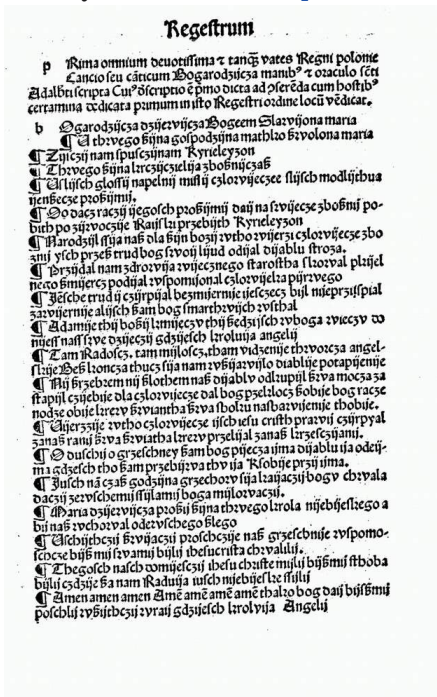 Regestrum
pRima omnium devotissima ⁊ tanq̃ vates Regni polonie
Cancio seu cãticum Bogarodzijcza manibꝰ ⁊ oraculo sẽti
Adalbti scripta Cuiꝰ dscriptio ẽ pmo dicta ad pserẽda cum hostibꝰ
certamina dedicata primum in isto Regestri ordine locũ vẽdicat.
bOgarodzijcza dzijervijcza Bogeem Slarvijona maria
¶ U thrvego ßijna gospodzijna mathko ßrvolona maria
¶ Zijsczij nam spusczijnam Kyrieleyzon
¶ Thrvego ßijna krczijczielija zboßnijczaß
¶ Uslijsch glossij napelnij mislij czlorvijeczee slijsch modlijthua
ijenßecze proßijmij.
¶ Oo dacz raczij ijegosch proßijmij daij na srvijecze zboßnij po-
bith po zijrvoczije Raijski przebijth Kyrieleyzon
¶ Narodzijl ssija naß dla ßijn bozij rvtho rvijerzi czlorvijecze zbo
znij ysch przeß trud bog srvoij lijud odijal dijablu stroza.
¶ Przijdal nam zdrorvija rvijecznego starostha skorval pkijel
nego ßmijercz podijal rvspomijonal czlorvijeka pijrvego
¶ Jesche trud ij czijrpijal bezmijernije ijesczecz bijl nijeprzijspial
zarvijernije alijsch ßam bog smarthrvijch rvsthal
¶ Adamije thij boßij kmijeczv thij ßedzijsch rvboga rvieczv do
nijesß nasß srve dzijeczij gdzijesch kroluija angelij
¶ Tam Radoscz, tam mijloscz, tham vidzenije thrvorcza angel-
skije Beß koncza thucz sija nam rvßijarvijlo diablije potapijenije
¶ Nij srzebrem nij ßlothem naß dijablv odkupijl ßrva mocza za
stapijl czijebije dla czlorvijecze dal bog przeklocz ßobije bog racze
nodze obije krerv ßrviantha ßrva sboku naßbarvijenije thobije.
¶ Uijerzzije rvtho czlorvijecze ijsch iesu cristh prarvij czijrpyal
zanaß ranij ßrva ßrviatha krerv przelijal zanaß krzesczijanij.
¶ O duschij o grzeschney ßam bog pijecza ijma dijablu ija odeij-
ma gdzesch tho ßam przebijrva thv ija Ksobije przij ijma.
¶ Jusch nã czaß godzijna grzechorv sija kaijaczij bogv chrvala
daczij zervschemij ssijlamij boga mijlorvaczij.
¶ Maria dzijervijcza proßij ßijna thrvego krola nijebijeskego a
bij naß rvchorval odervschego ßlego
¶ Uschijthczij ßrvijaczij proschczije naß grzeschnije rvspomo-
schcze bijß mij srvamij bijlij ihesucrista chrvalilij.
¶ Thegosch nasch domijesczij ihesu christe mijlij bijßmij sthoba
bijlij czdzije ßa nam Raduija iusch nijebijeske ssijlij
¶ Amen amen amen Amẽ amẽ amẽ thakzo bog daij bijsßmij
poschlij rvßijthczij rvraij gdzijesch krolvija Angelij